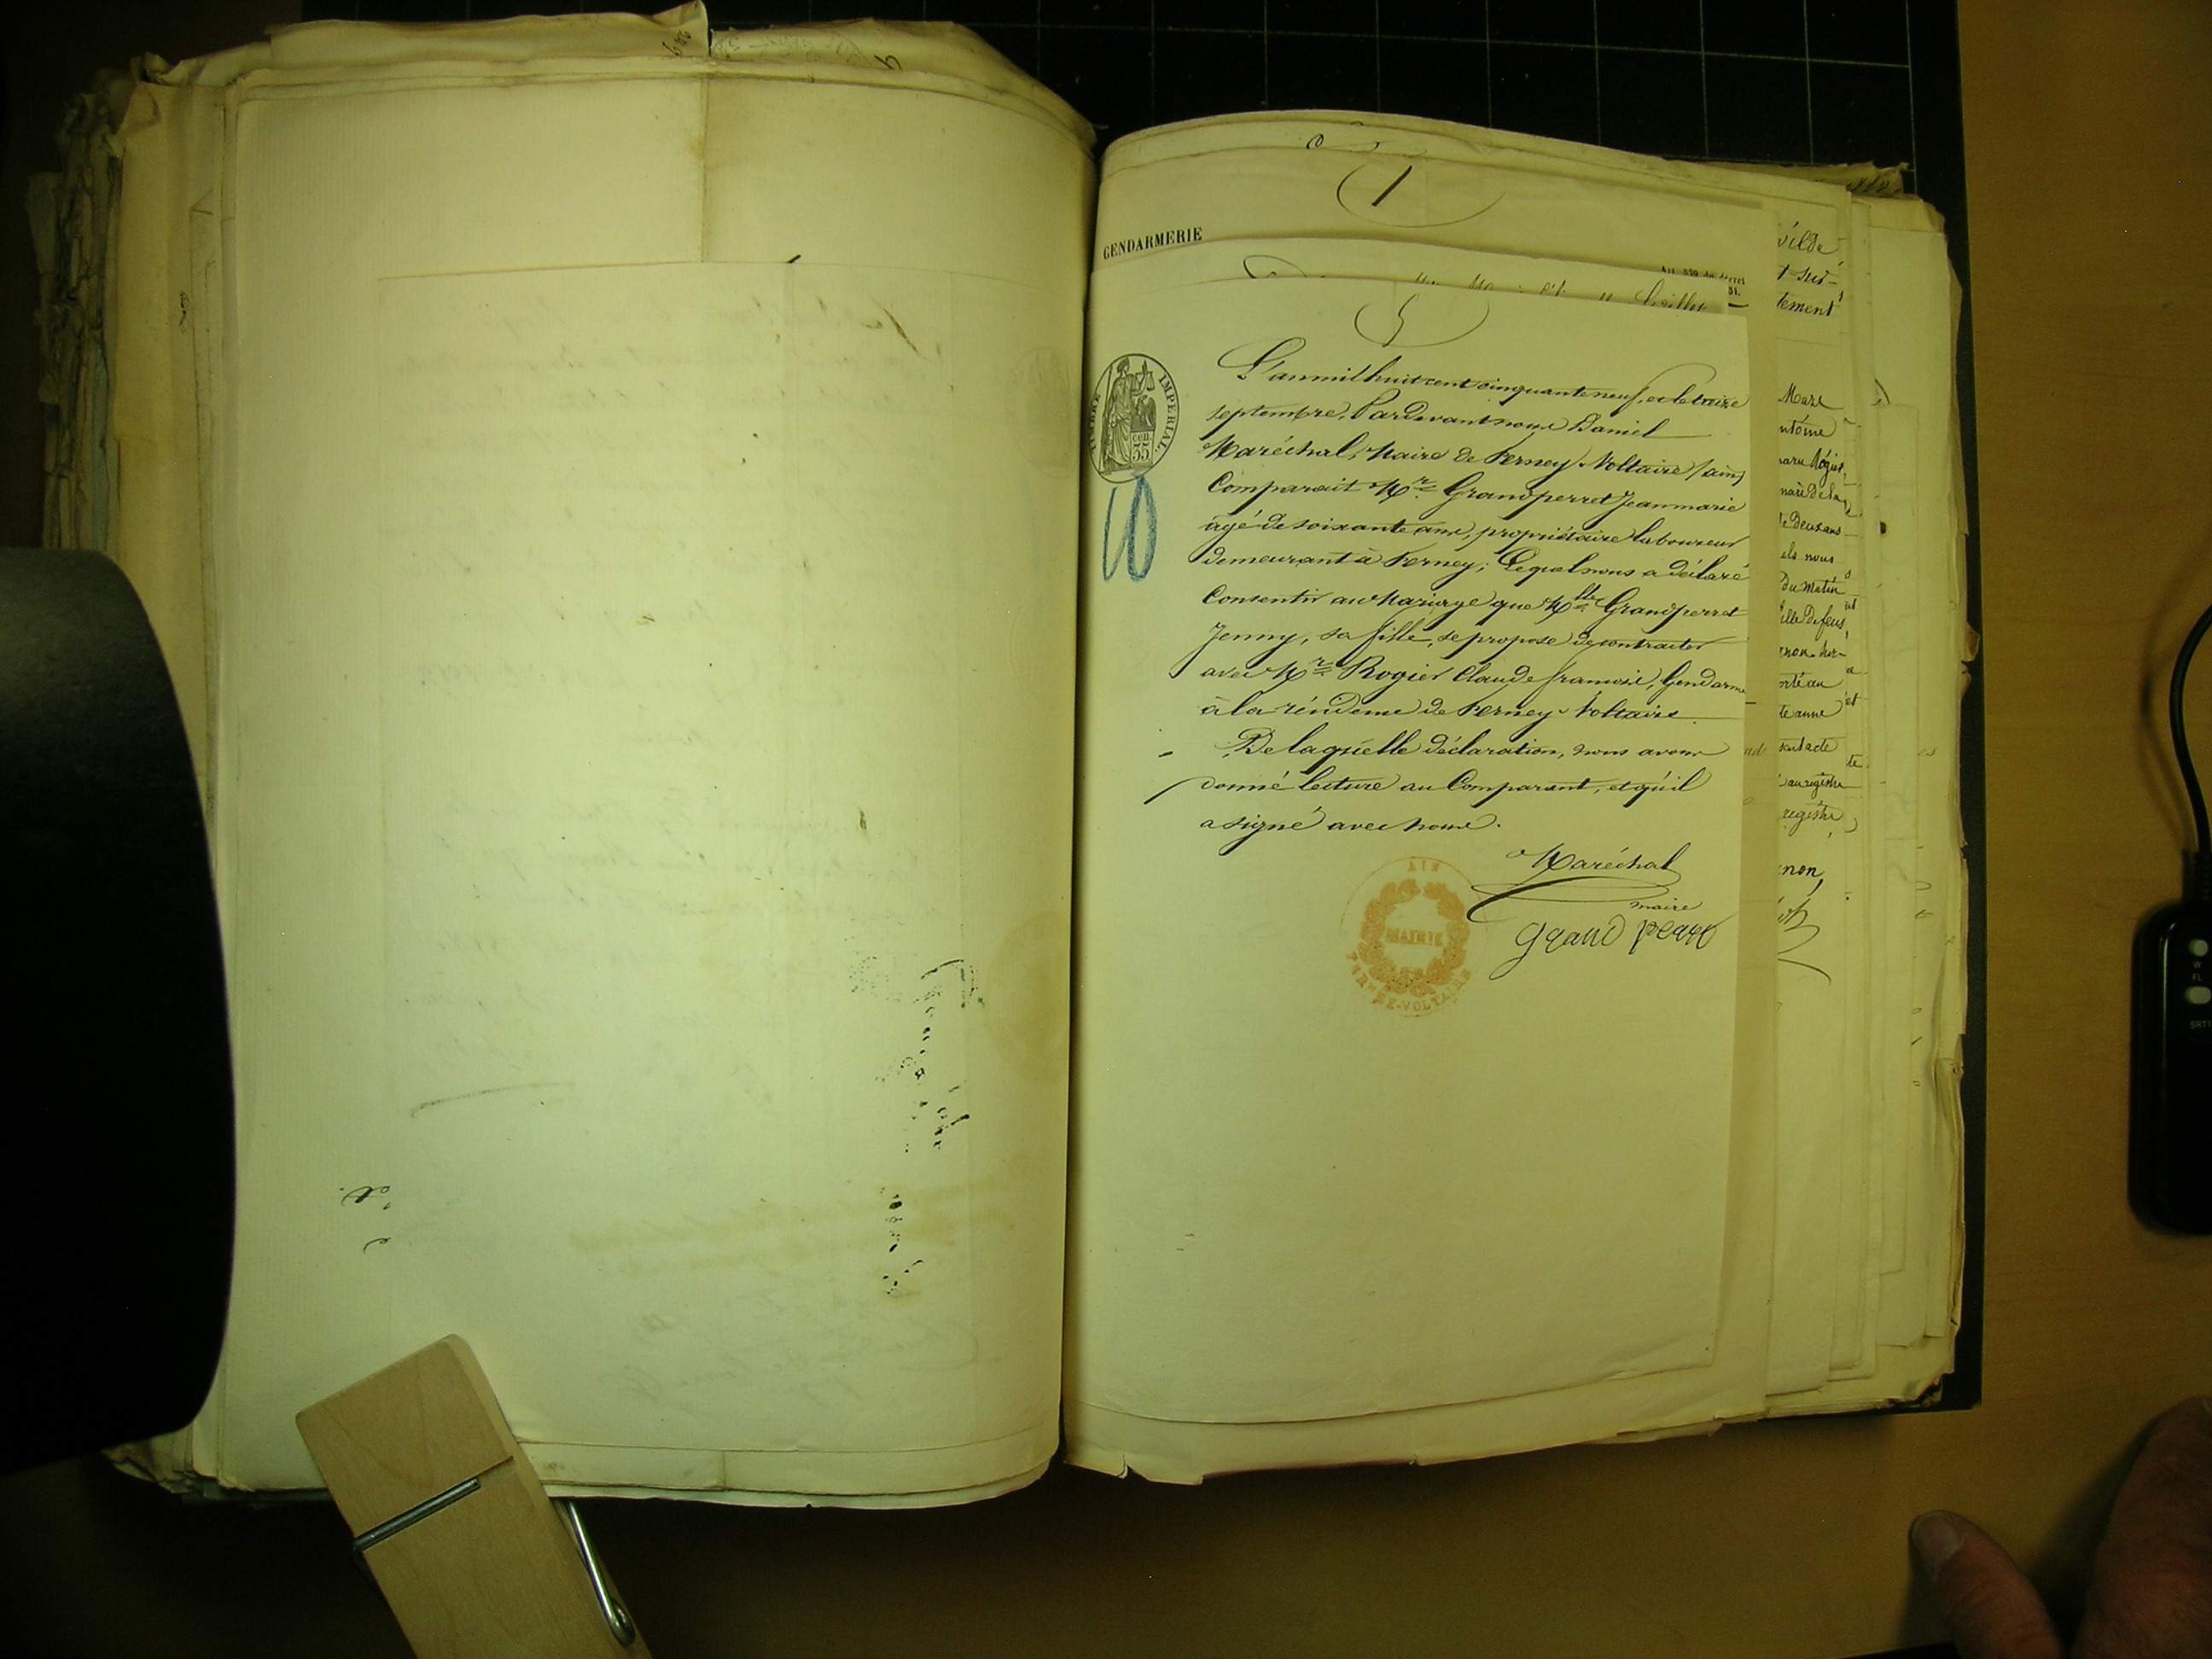 1
GENDARMERIE
5
TIMBRE IMPERIAL
35 cen
L'an mil huit cent cinquante neuf, et le treize
septembre, Pardevant nous Daniel
Maréchal, Maire de Ferney-Voltaire (ain)
Comparait Mr Grandperret Jean marie
âgé de soixante ans, propriétaire laboureur
demeurant à Ferney; Lequel nous a déclaré
Consentir au Mariage que Mlle Grandperret
Jenny, sa fille, se propose de contracter
avec Mr Rogier Claude françois, Gendarme
à la résidence de Ferney-Voltaire.
De laquelle déclaration, nous avons
donné lecture au Comparant, et qu'il
a signé avec nous.
Maréchal
maire
grand perret
AIN
MAIRIE
FERNEX-VOLTAIRE
vilde
t sur-
tement
Marc
ntoine
te deux ans
els nous
du matin
te anne
au registre
registre
non,